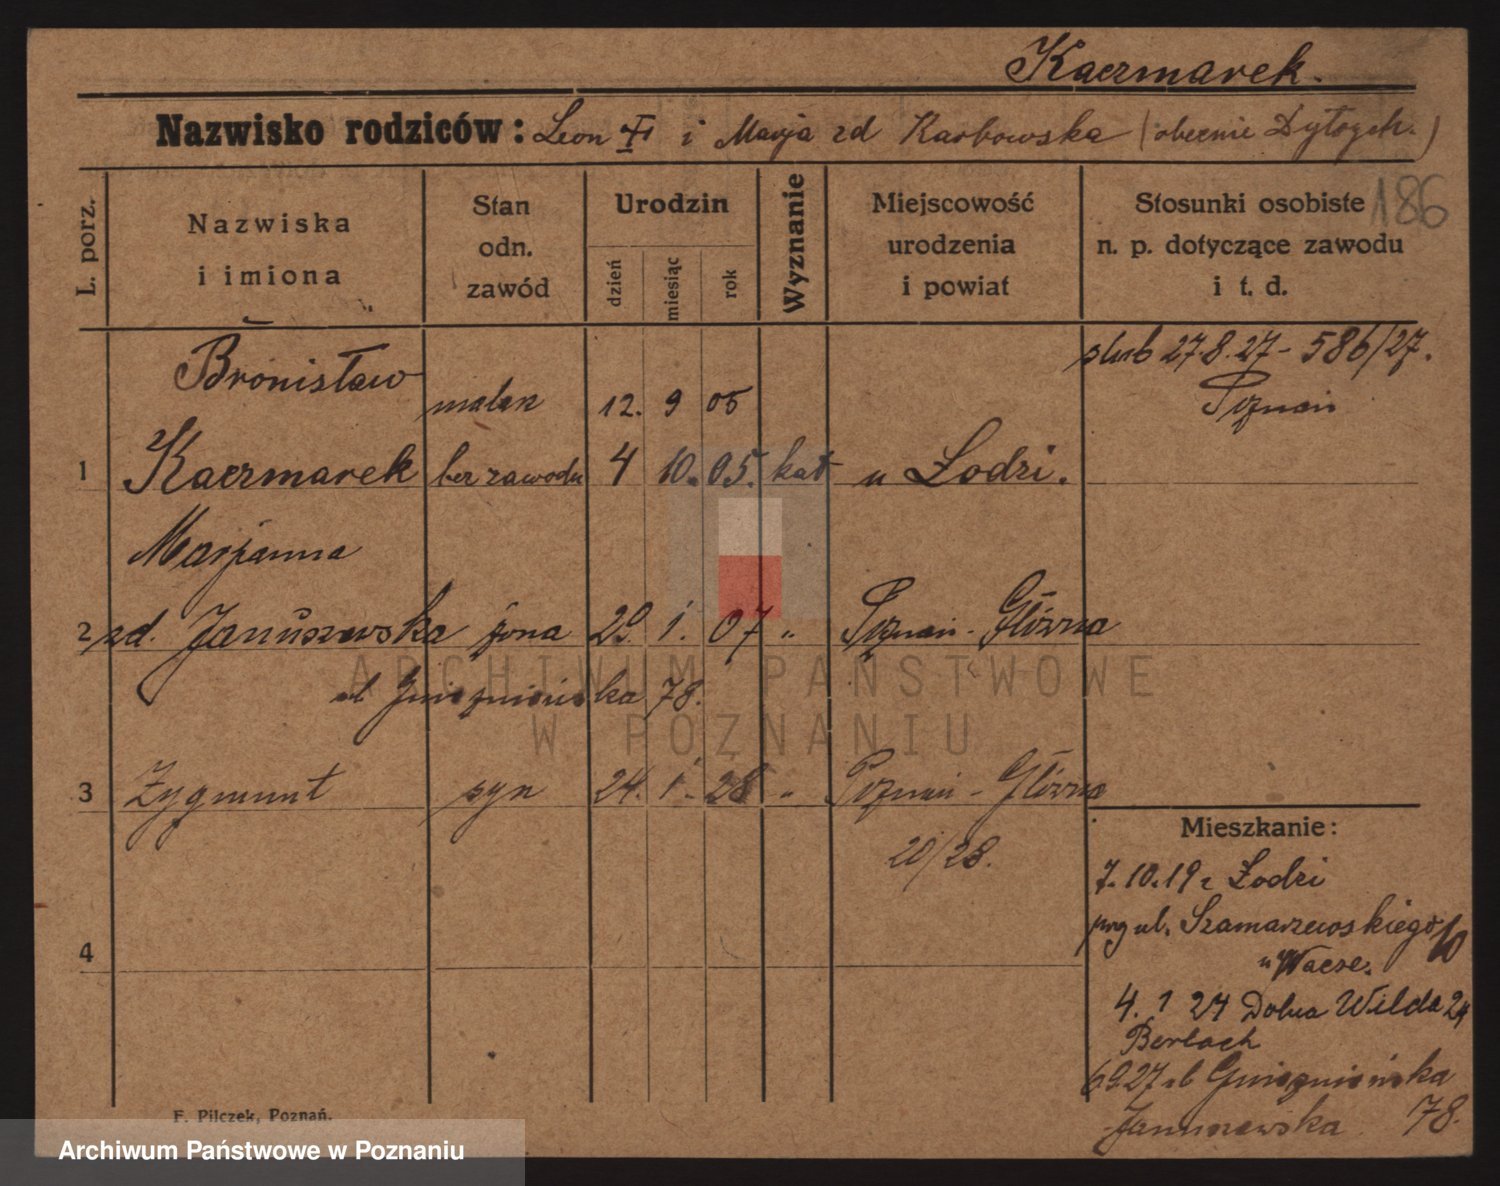 Kaczmarek.
Nazwisko rodziców: Leon i Marja zd Karbowska (obecnie
186
L. porz.
Nazwiska i imiona
Stan odn. zawód
Urodzin
dzień
miesiąc
rok
Wyznanie
Miejscowość urodzenia i powiat
Stosunki osobiste n. p. dotyczące zawodu i t. d.
ślub 27.8.27 - 586/27.
Poznań
Bronisław
malarz 12. 9 05
1 Kaczmarek bez zawodu 4 10. 05. kat u Łodzi.
Marjanna
2 zd. Januszewska żona 29. 1. 07 " Poznań - Główna
ul Gnieźnieńska 78.
3 Zygmunt syn 24. 1. 28 " Poznań - Główna
20/28.
4
Mieszkanie:
7.10.19 z Łodzi
prz ul. Szamarzewskiego 10
u Wacse.
4. 1 27 Dolna Wilda 24
Berlach
6.9.27 ul Gnieźnieńska
Januszewska 78.
F. Pilczek, Poznań.
ARCHIWUM PAŃSTWOWE
W POZNANIU
Archiwum Państwowe w Poznaniu